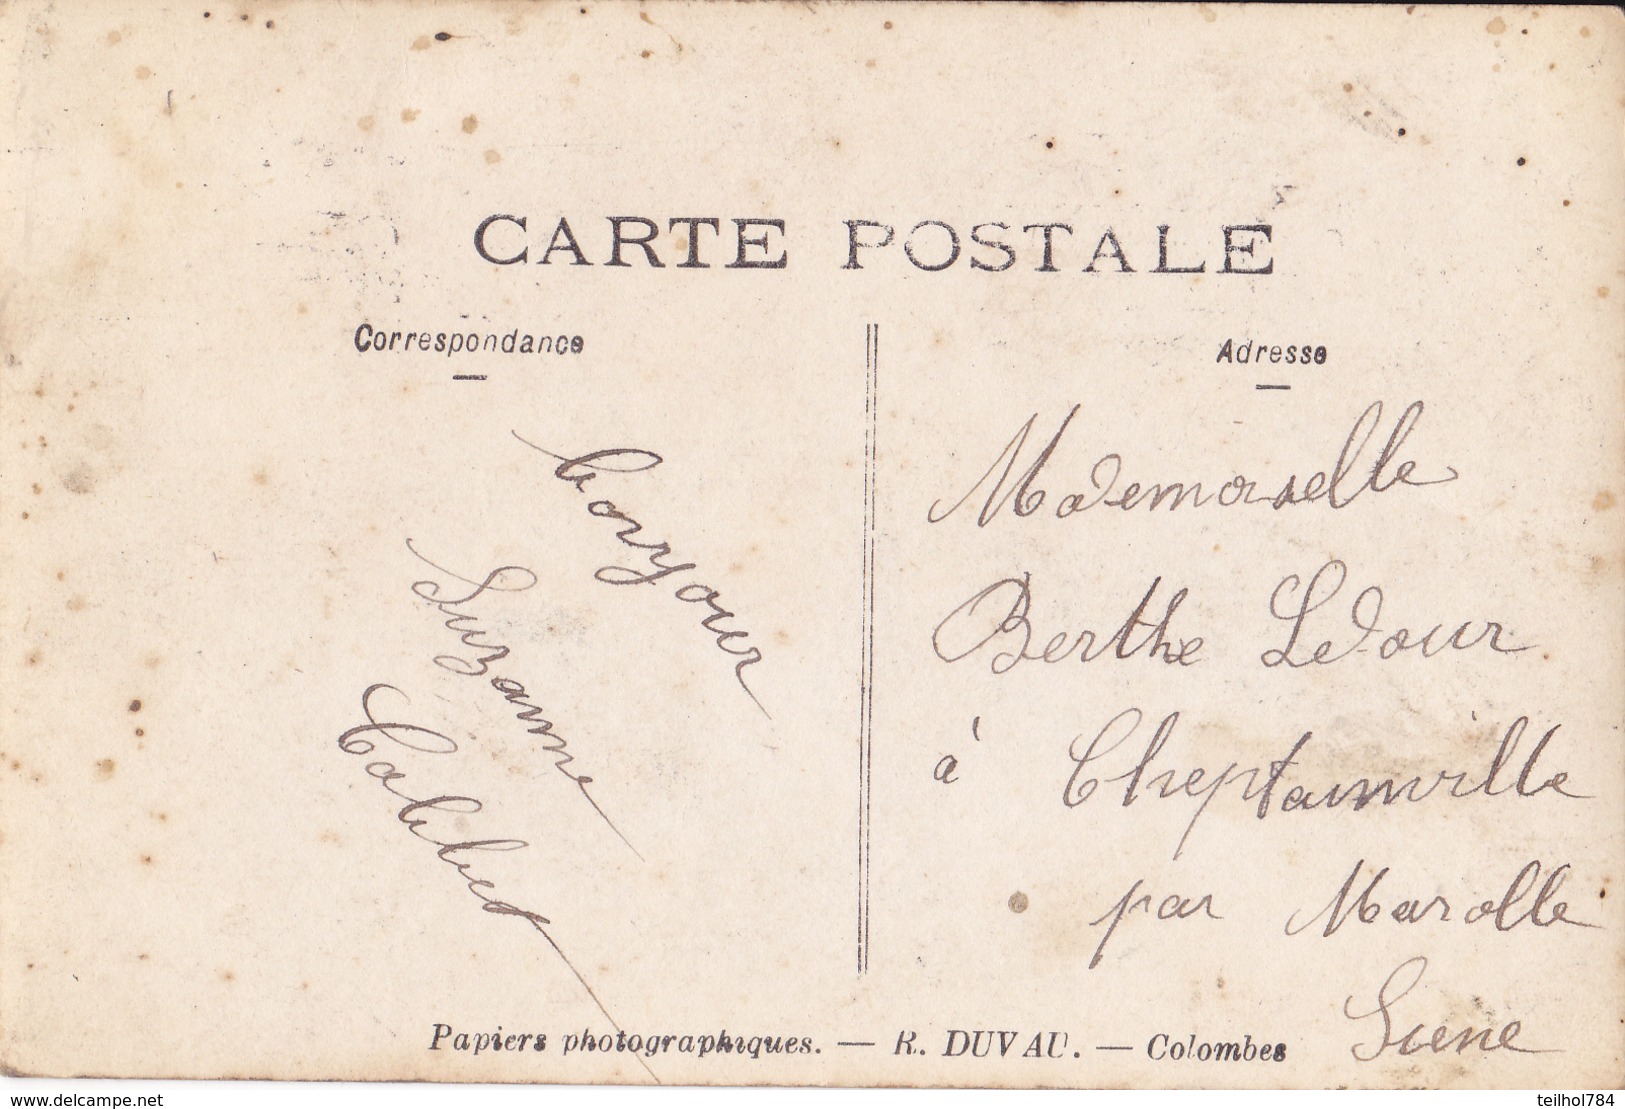 CARTE POSTALE
Correspondance
Adresse
bonjour
Suzanne
Cabbet
Mademoiselle
Berthe Ledour
à Cheptainville
par Marolle
Siene
Papiers photographiques. — R. DUVAU. — Colombes
www.delcampe.net
teilhol784